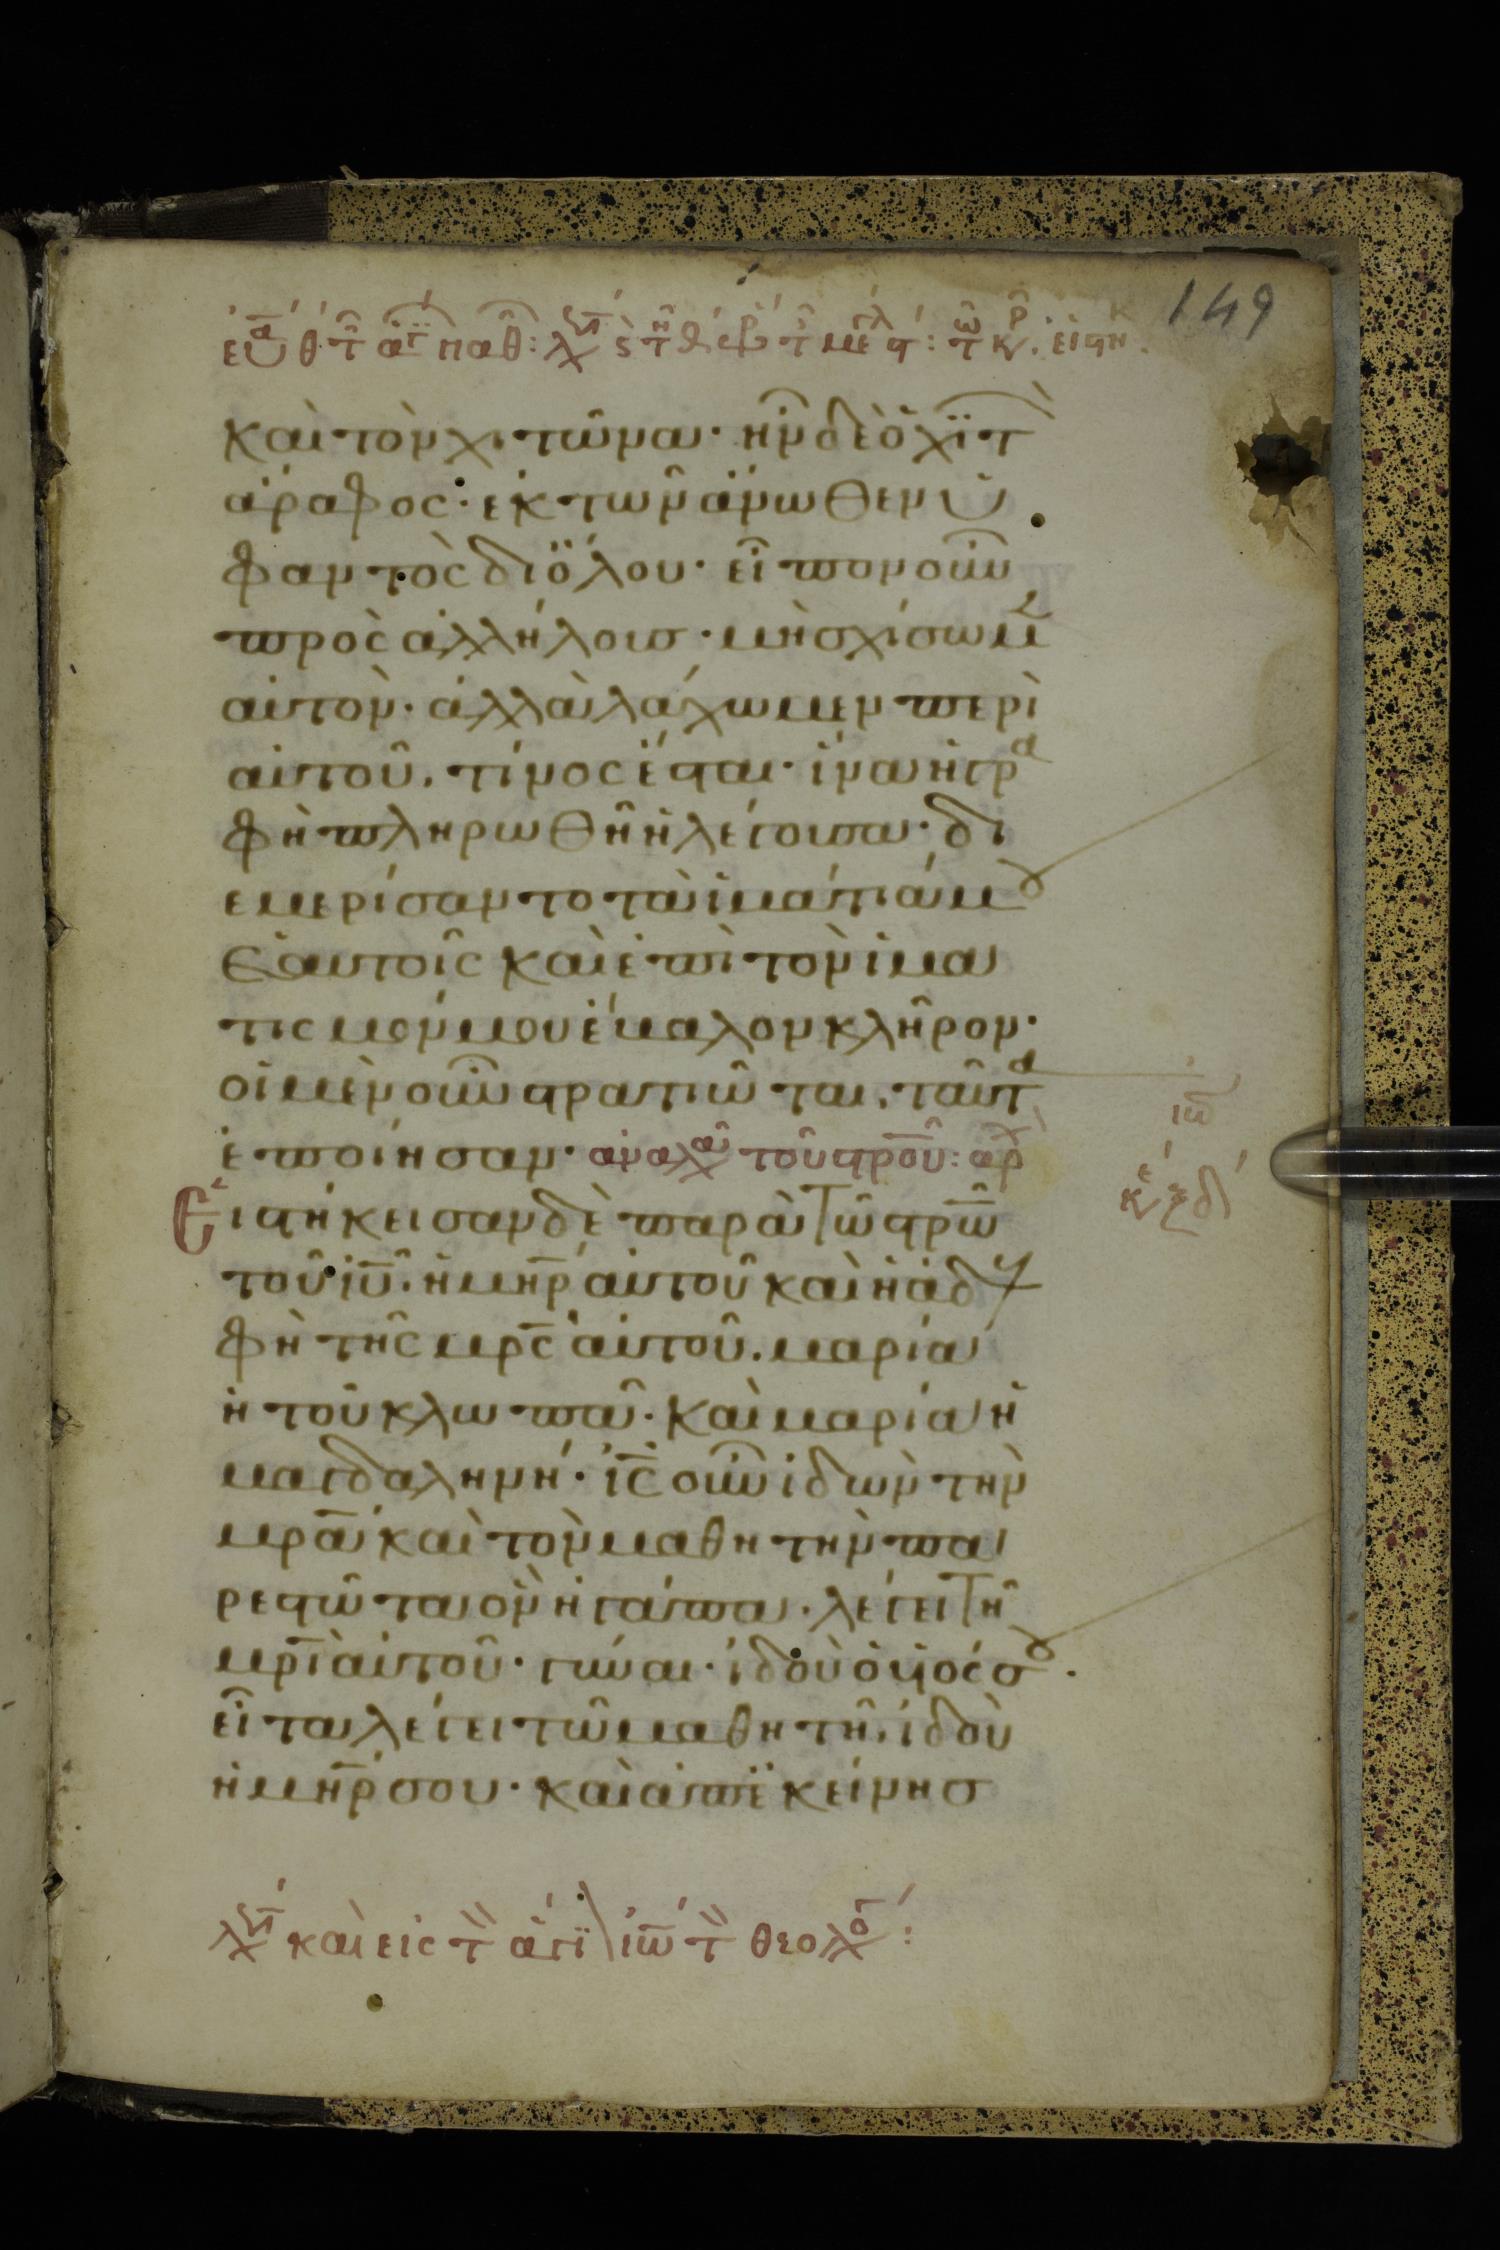 149
καὶ τὸν χιτῶνα· ἦν δὲ ὁ χϊτ
ἄραφος· ἐκ τῶν ἄνωθεν ὑ
φαντὸς δι ὅλου· εἶπον οὖν
πρὸς ἀλλήλους· μὴ σχίσωμ
αὐτὸν· ἀλλὰ λάχωμεν περὶ
αὐτοῦ, τίνος ἔσται· ἵνα ἡ γρα
φὴ πληρωθῆ ἡ λέγουσα· δι
εμερίσαντο τὰ ἱμάτιά μου
ἑαυτοῖς καὶ ἐπὶ τὸν ἱμα
τισμόν μου ἔβαλον κλῆρον·
οἱ μὲν οὖν στρατιῶται, ταῦτα
ἐποίησαν· ἀναγ τοῦ στρου: αρχ
Ειστήκεισαν δὲ παρὰ τῶ στρω
τοῦ ιυ. ἡ μηρ αὐτοῦ καὶ ἡ ἀδελ
φὴ τῆς μρς αὐτοῦ. μαρία
ἡ τοῦ κλωπᾶ. καὶ μαρία ἡ
μαγδαληνή· ις οὖν ἰδὼν τὴν
μρα καὶ τὸν μαθητὴν πα
ρεστῶτα ὃν ἠγάπα. λέγει τῆ
μρι αὐτοῦ· γύναι· ἰδοὺ ὁ υἱός σου.
εἶτα λέγει τῶ μαθητῆ, ἰδοὺ
ἡ μηρ σου· καὶ ἀπ ἐκείνης
καὶ εἰς τ ἁγϊ ιω τ θεολο: